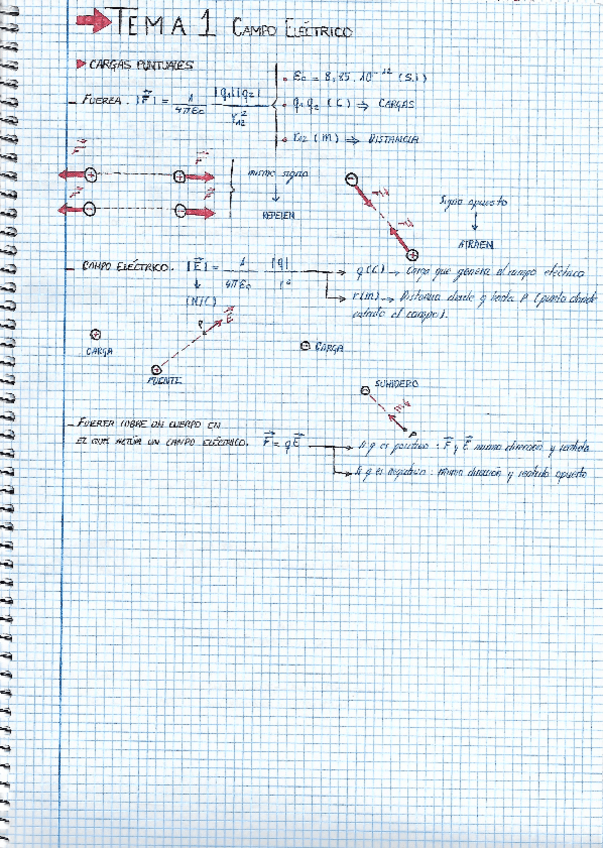 TEMA 1 CAMPO ELÉCTRICO
CARGAS PUNTUALES
- FUERZA. |F⃗| = 1/4πε₀ |q₁||q₂|/r₁₂²
ε₀ = 8,85.10⁻¹² (S.I)
q₁ q₂ (C) ⇒ CARGAS
r₁₂ (m) ⇒ DISTANCIA
F⃗ F⃗
F⃗ F⃗
mismo signo
↓
REPELEN
F⃗
F⃗
Signo opuesto
↓
ATRAEN
- CAMPO ELÉCTRICO. |E⃗| = 1/4πε₀ |q|/r²
(N/C)
q (C) → Carga que genera el campo eléctrico
r (m) → Distancia desde q hasta P (punto donde
calculo el campo).
+ CARGA
P E⃗
+ FUENTE
- CARGA
- SUMIDERO
E⃗
P
- FUERZA SOBRE UN CUERPO EN
EL QUE ACTÚA UN CAMPO ELÉCTRICO. F⃗ = qE⃗
Si q es positiva : F⃗ y E⃗ misma dirección y sentido
Si q es negativa : misma dirección y sentido opuesto